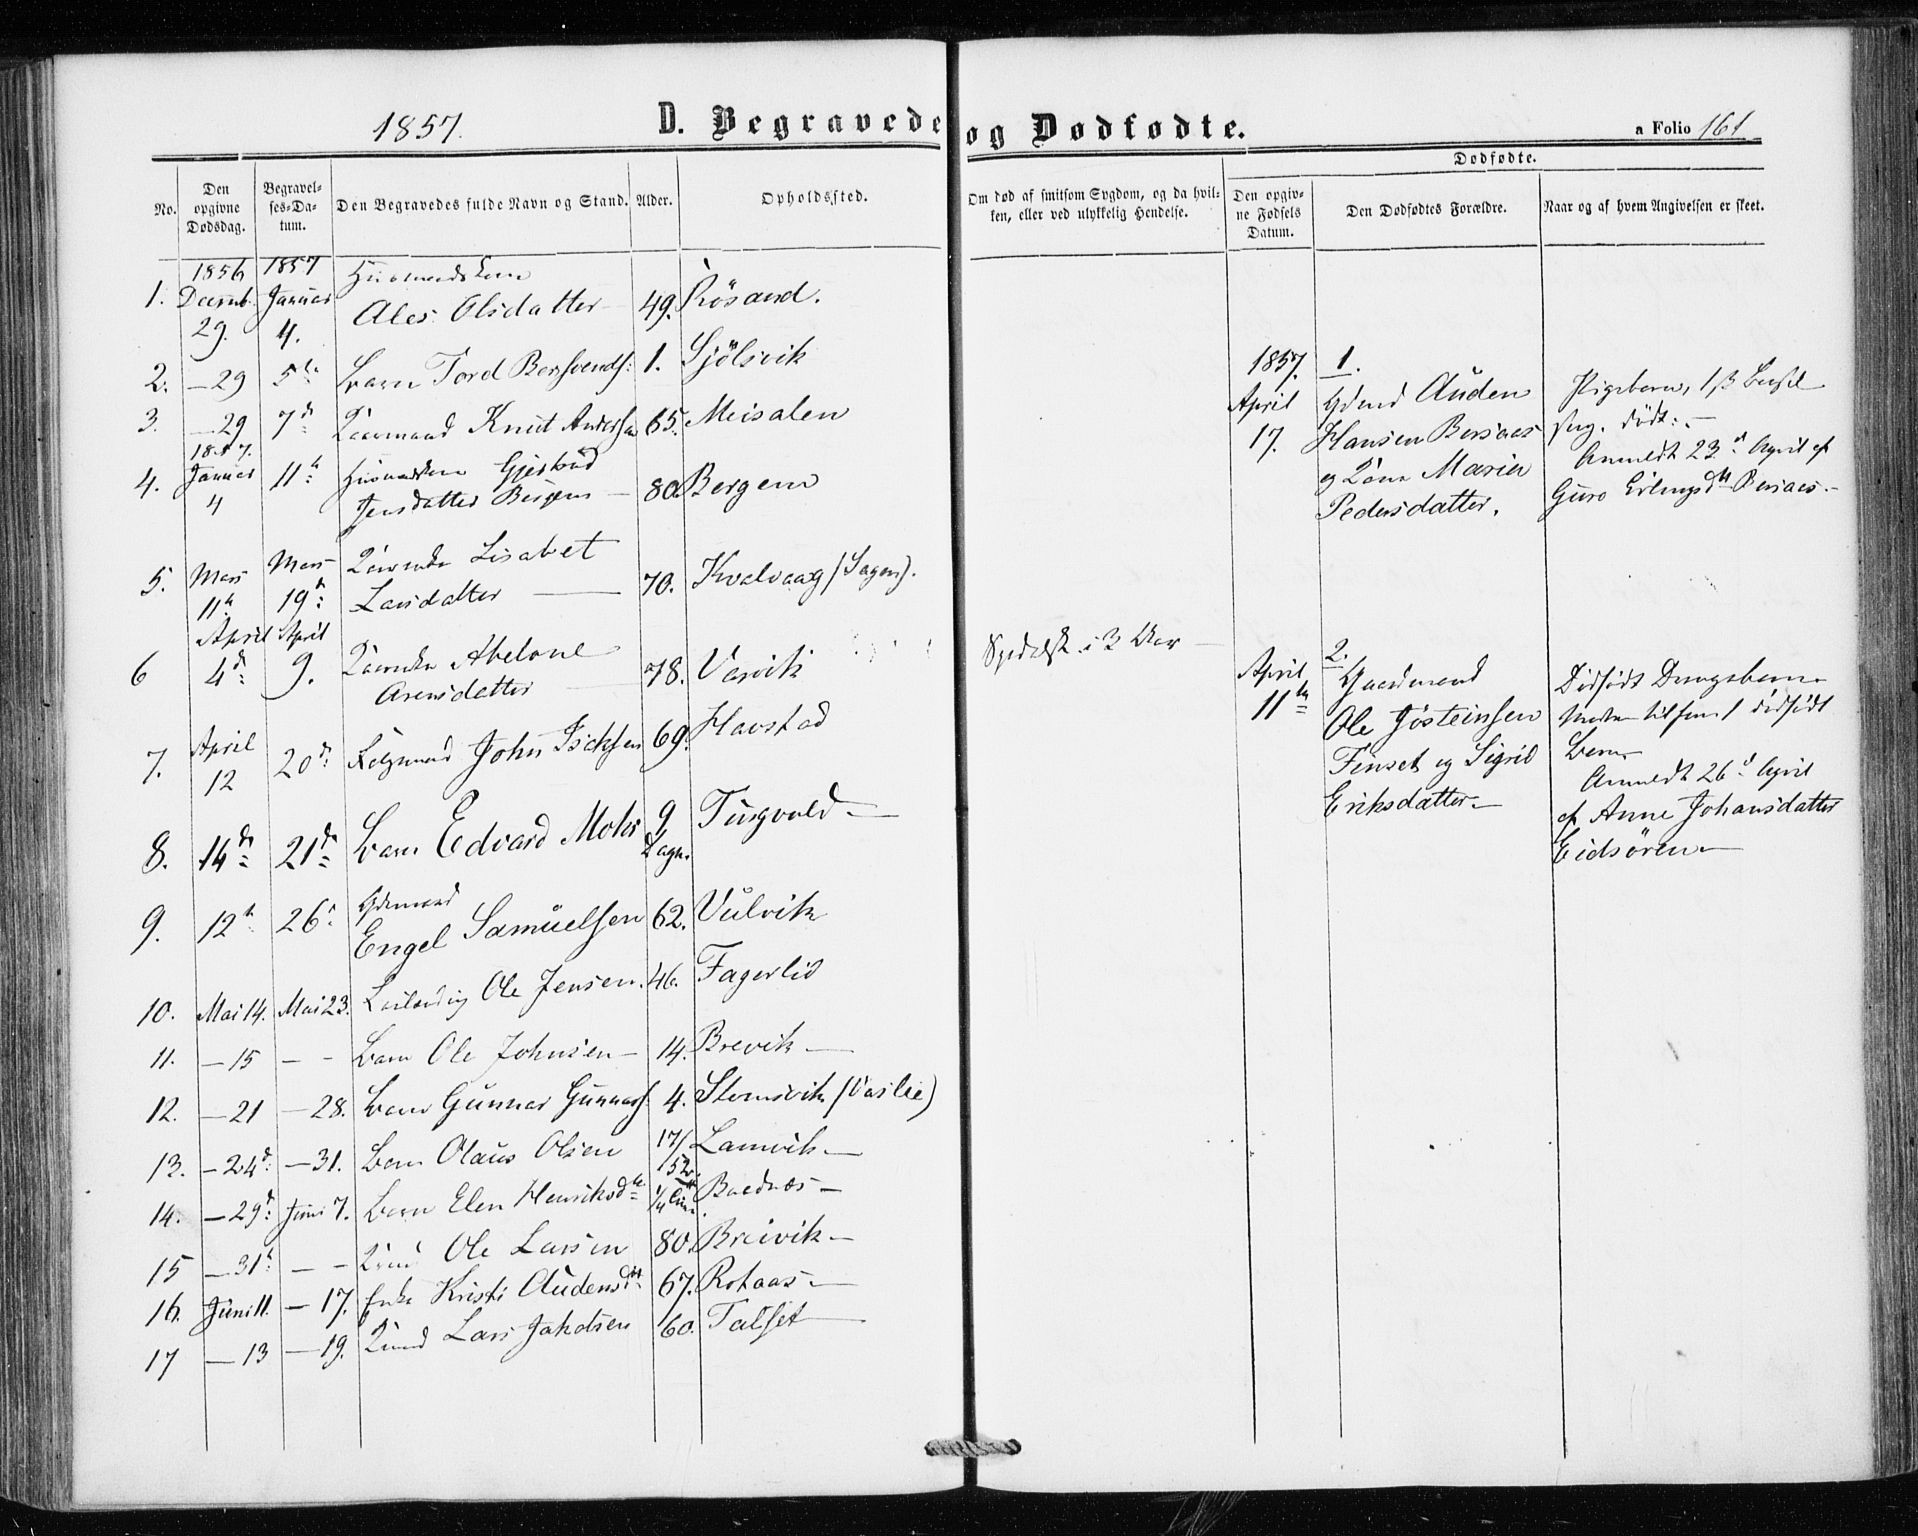 1857. D. Begravede og Dødfødte. a Folio 161
No.
Den opgivne Dødsdag.
Begravelses-Datum.
Den Begravedes fulde Navn og Stand.
Alder.
Opholdssted.
Om død af smitsom Sygdom, og da hvilken, eller ved ulykkelig Hendelse.
Dødfødte.
Den opgivne Fødsels Datum.
Den Dødfødtes Forældre.
Naar og af hvem Angivelsen er skeet.
1856 1857
1. Decemb. 29. Januar 4. Ales Olsdatter 49. Rösand.
2. — 29 5te Barn Tord Bersvends: 1. Sjölsvik
3. — 29 7d Knut Anders 65. Meisalen
1857.
4. Januar 4 11te Gjertrud
Jensdatter Bergem — 80. Bergem
5. Mars 11te Mars 19d Lisabet
Larsdatter — 70. Kvalvaag (Sagen).
6 April 4d April 9. Abelone
Arensdatter — 78. Vasvik Spedalsk i 3 Aar
7. April 12 20d John 69. Havstad
8. 14d 21d Barn Edvard Mohr 9 Dage. Tingvold —
9. 12te 26d Gdmand
Engel Samuelsen 62. Vulvik
10. Mai 14. Mai 23. Ole Jensen. 46. Fagerlid
11. — 15 — — Barn Ole Johnsen — 14. Brevik —
12. — 21 — 28. Barn Gunnar Gunnars: 4. Stomsvik (Vaslie)
13. — 24d: — 31. Barn Olaus Olsen 17/52 Lamvik —
14. — 29d: Juni 7. Barn Elen Henriksdtr 1/4 Boednæs —
15 — 31te — — Ole Larsen 80. Breivik —
16. Juni 11. — 17. Enke Kristi Audensdtr 67. Rotaas —
17 — 13 — 19. Lars Jakobsen 60. Talset —
1857. 1.
April 17. Gdmd Auden
Hansen Bersaas
og Kone Marie
Pedersdatter.
Pigebarn,
født: —
Anmeldt 23d April af
Guro Erlingsdtr Bersaas. —
2.
April 11te Gaardmand
Ole Jösteinsen
Finset og Sigrid
Eriksdatter —
Dødfødt Drengebarn
1 dødfødt
Barn
Anmeldt 26d April
af Anne Johansdatter
Eidsören —